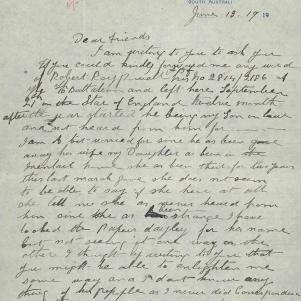 SOUTH AUSTRALI
June 13. 1919
Dear Friends
I am writing to you to ask you
if you could kindly forward me any word
of Robert
Battalion and left here September
on the Star of England twelve month
after the war started he being my Son in law
and not heard from him for
I am a bit worried for since he as been gone
away his wife my Daughter as been in the
Mental she as been there for two years
this last march June she does not seem
to be able to say if she hears at all
she tell me she as never heard from
him since the as being strange I have
looked the Papers dayley for his name
but not seeing it one way or the
other I thought by writing to you that
you might be able to enlighten me
some way and I dont know any
thing of his People as I never did Correspondence